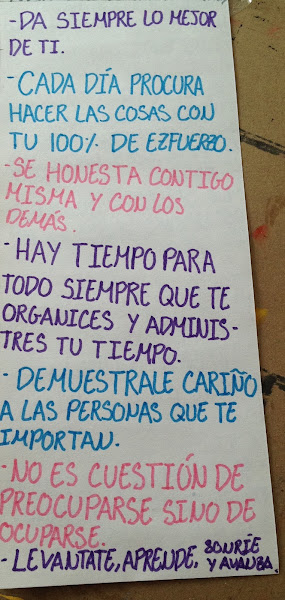 -DA SIEMPRE LO MEJOR
DE TI.
-CADA DÍA PROCURA
HACER LAS COSAS CON
TU 100% DE EZFUERZO.
-SE HONESTA CONTIGO
MISMA Y CON LOS
DEMÁS.
-HAY TIEMPO PARA
TODO SIEMPRE QUE TE
ORGANICES Y ADMINIS-
TRES TU TIEMPO.
-DEMUESTRALE CARIÑO
A LAS PERSONAS QUE TE
IMPORTAN.
-NO ES CUESTIÓN DE
PREOCUPARSE SINO DE
OCUPARSE.
-LEVANTATE, APRENDE, SONRÍE
Y AVANZA.